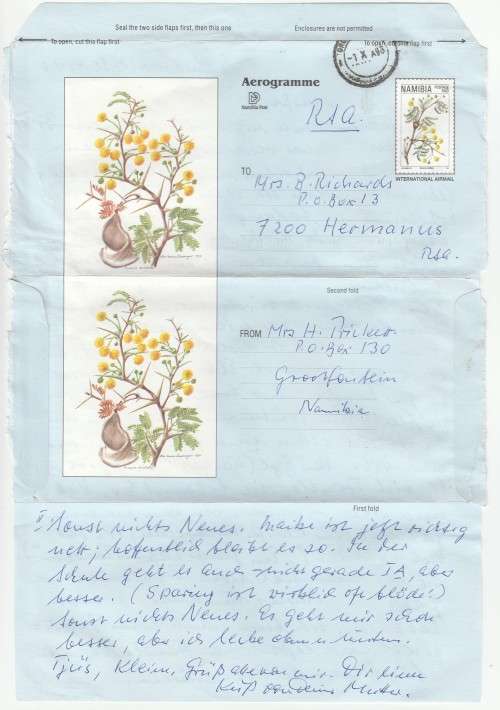 Seal the two side flaps first, then this one
Enclosures are not permitted
To open, cut this flap first
To open, cut this flap first
-1 X
Aerogramme
Namibia Post
NAMIBIA
INTERNATIONAL AIRMAIL
RSA.
TO
Mrs. B. Richards
P.O Box 13
7200 Hermanus
Rsa.
Second fold
FROM
Mrs H.
P.O-Box 130
Grootfontein
Namibia
First fold
Sonst nichts Neues. ist jetzt richtig
nett; hoffentlich bleibt es so. In der
Schule geht es auch nicht gerade IA, aber
besser. ( ist wirklich oft blöde!)
Sonst nichts Neues. Es geht mir schon
besser, aber ich
Tjüs, Kleine. Dir einen
Kuß von Deine Mutter.